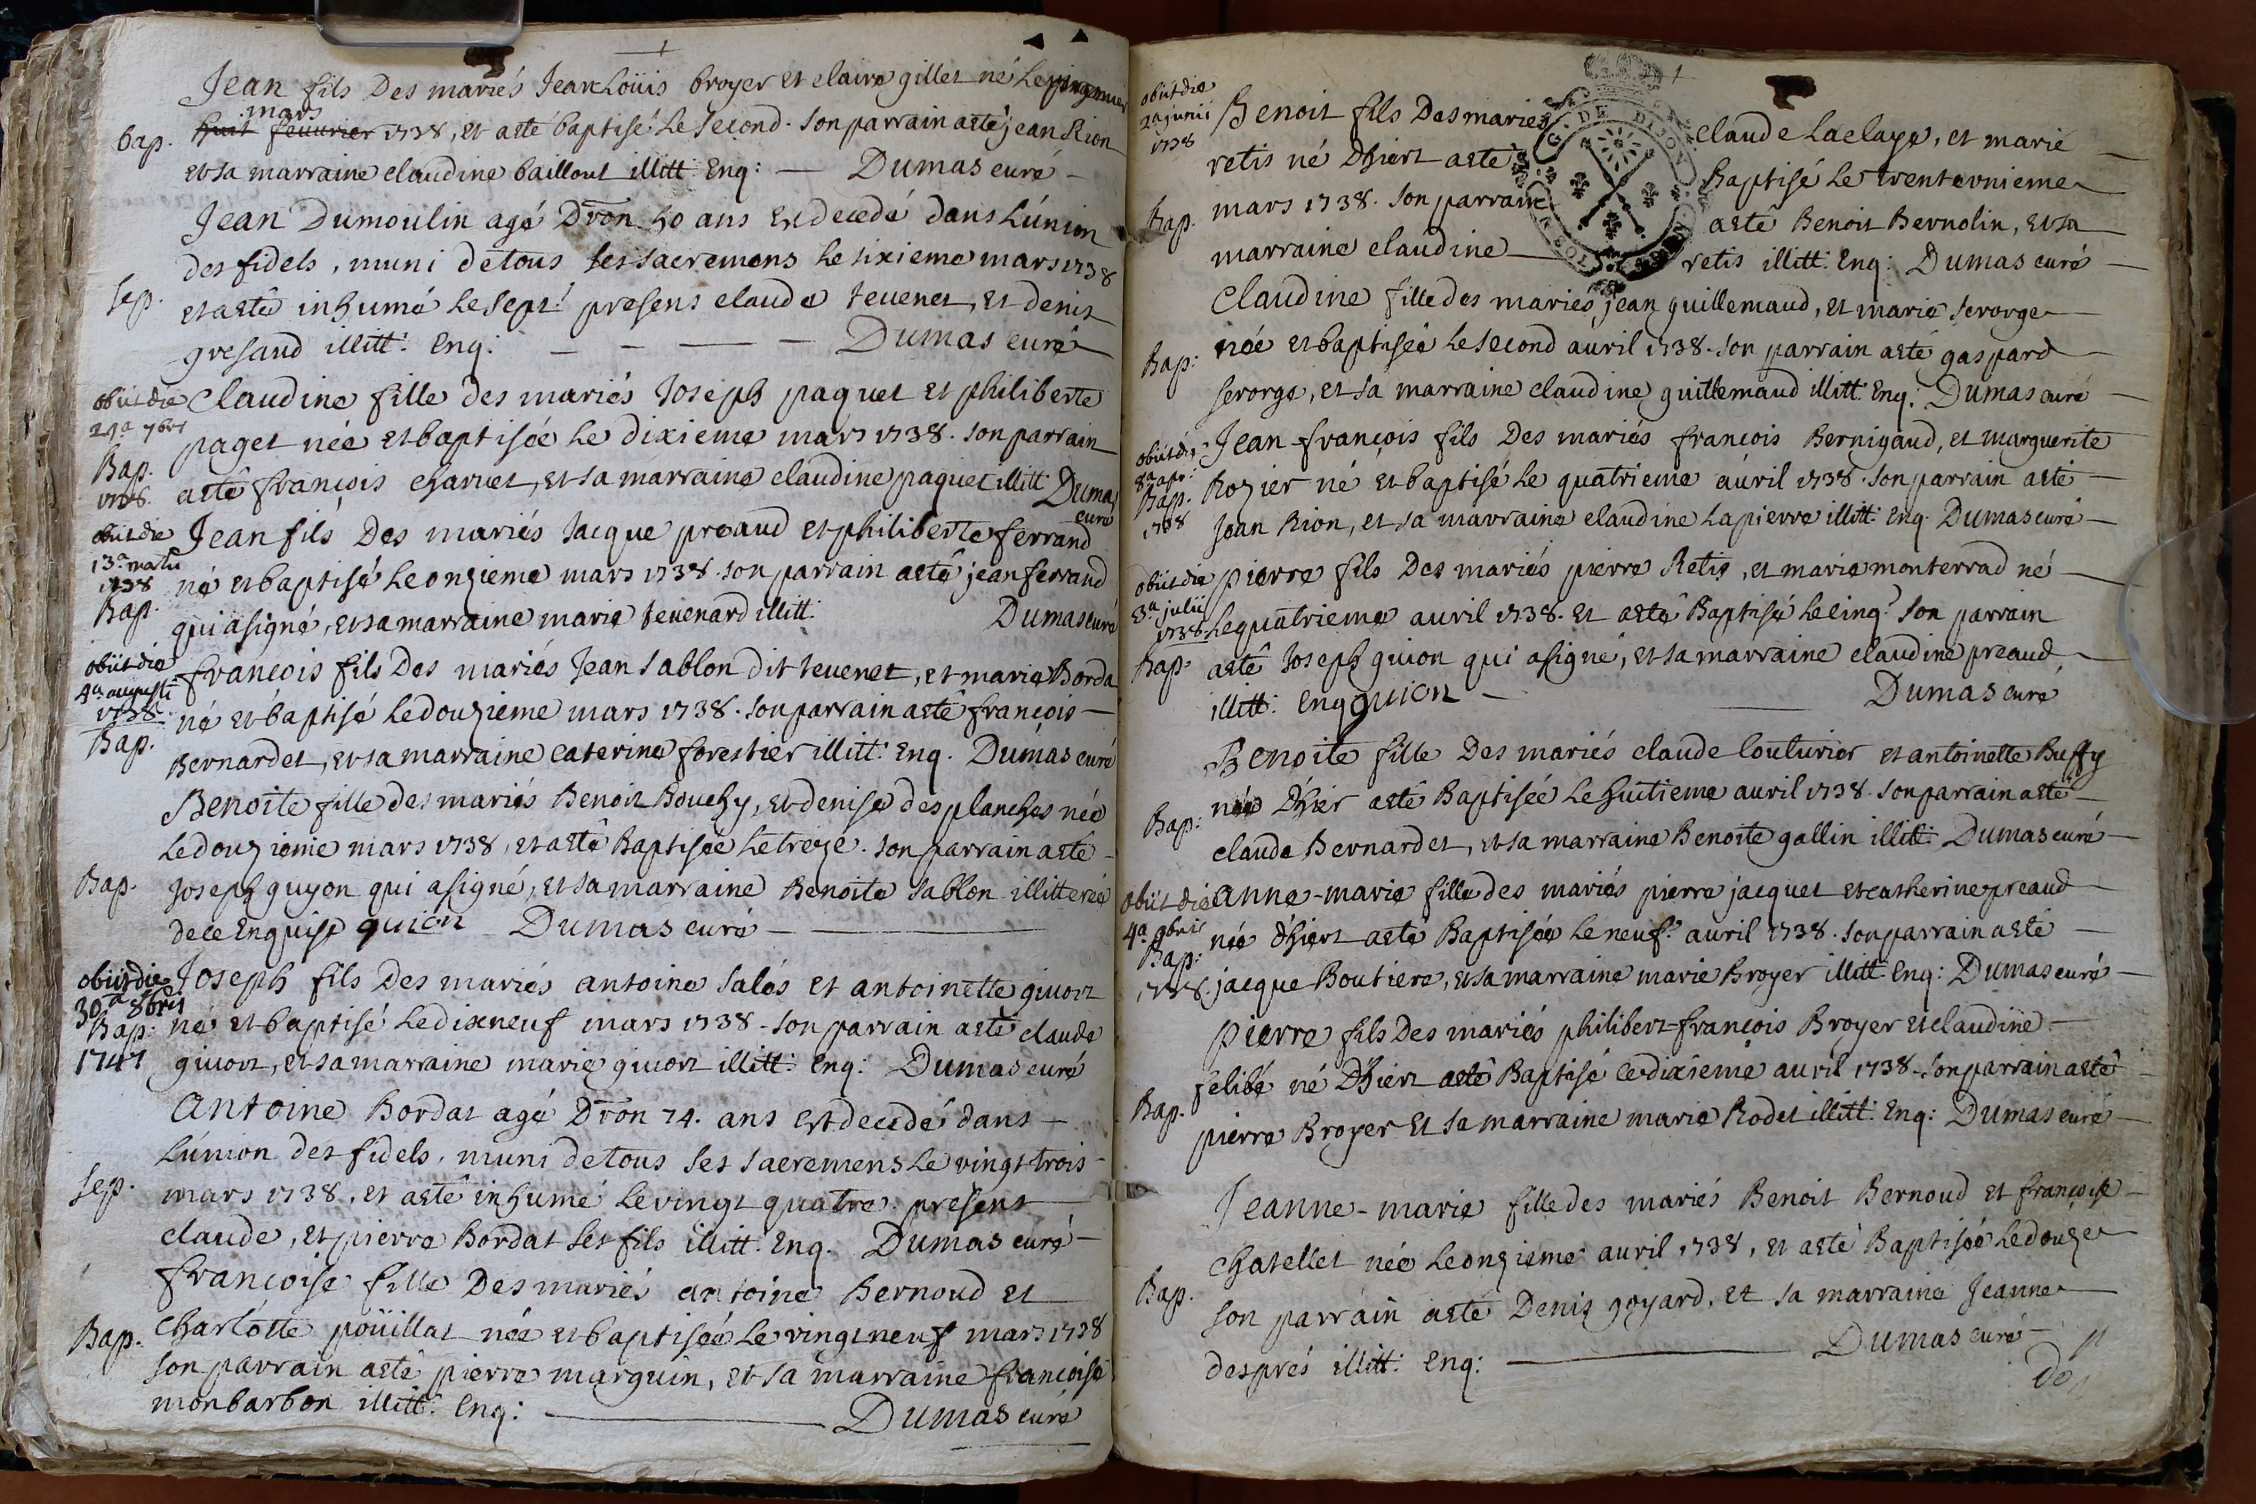 Jean fils Des mariés Jean Loüis broyer et claire gillet né le premier
mars
bap. huit feuurier 1738, et asté baptisé le second. son parrain asté jean Rion
et sa marraine claudine baillout illitt: Enq: — Dumas curé —
Jean Dumoulin agé Dron 50 ans est decedé dans lúnion
des fidels, muni de tous ses sacremens le sixieme mars 1738
sep. et asté inhumé le sept: presens claude teuenet, et denis
gresaud illitt: Enq: — — — — Dumas curé
obiit die
29a 7bris
Bap.
1738.
Claudine fille des mariés Joseph paquet et philiberte
paget née et baptisée le dixieme mars 1738. son parrain
asté françois charuet, et sa marraine claudine paquet illitt: Dumas
curé
obiit die
13a martii
1738
Bap.
Jean fils Des mariés Jacque preaud et philiberte ferrand
né et baptisé le onzieme mars 1738. son parrain asté jean ferrand
qui a signé, et sa marraine marie teuenard illitt: Dumas curé
obiit die
4a augusti
1738.
Bap.
françois fils Des mariés Jean sablon dit teuenet, et marie Borda
né et baptisé le douzieme mars 1738. son parrain asté françois —
Bernardet, et sa marraine caterine forestier illitt: Enq. Dumas curé
Benoite fille des mariés Benoit Bouchy, et denise desplanches née
le douzieme mars 1738, et asté Baptisée le treze. son parrain asté —
Bap. Joseph guyon qui a signé, et sa marraine Benoite sablon illitterée
de ce Enquise guion Dumas curé —
obiit die
30a 8bris
Bap:
1747
Joseph fils Des mariés antoine salés et antoinette giuort
né et baptisé le dixneuf mars 1738. son parrain asté claude
giuort, et sa marraine marie giuort illitt: Enq: Dumas curé
antoine Bordat agé Dron 74. ans est decedé dans —
lúnion des fidels, muni de tous ses sacremens le vingt trois
sep. mars 1738, et asté inhumé le vingt quatre. present —
claude, et pierre Bordat ses fils illitt: Enq. Dumas curé —
françoise fille Des mariés antoine Bernoud et
Bap. Charlótte poüillat née et baptisée le vingt neuf mars 1738
son parrain asté pierre marguin, et sa marraine françoise
monbarbon illitt: Enq: — Dumas curé
obiit die
2a junii
1738
G. DE DIJON
Benoit fils Des mariés claude Laclaye, et marie —
retis né Dhiert asté Baptisé le trenteunieme
Bap. mars 1738. son parrain asté Benoit Bernolin, et sa
marraine claudine — retis illitt: Enq: Dumas curé —
Claudine fille des mariés jean guillemaud, et marie serorge —
Bap: née et baptisée le second auril 1738. son parrain asté gaspard —
serorge, et sa marraine claudine guillemaud illitt: Enq: Dumas curé —
obiit die
8a apr:
Bap.
1738
Jean-françois fils Des mariés françois Bernigaud, et marguerite
Rozier né et baptisé le quatrieme auril 1738. son parrain asté —
Jean Rion, et sa marraine claudine lapierre illitt: Enq. Dumas curé —
obiit die
3a julii
1738
Bap.
pierre fils Des mariés pierre Retis, et marie monterrad né —
le quatrieme auril 1738. et asté Baptisé le cinq? son parrain
asté Joseph guion qui a signé, et sa marraine claudine preaud —
illitt: Enq guion — Dumas curé
Benoite fille Des mariés claude Couturier et antoinette Buffy
née Dhier asté Baptisée le huitieme auril 1738. son parrain asté —
Bap: claude Bernardet, et sa marraine Benoite gallin illitt: Dumas curé —
obiit die
4a 9bris
Bap:
1738.
anne-marie fille des mariés pierre jacquet et catherine preaud —
née dhiert asté Baptisée le neuf: auril 1738. son parrain asté —
jacque Boutiere, et sa marraine marie Broyer illitt: Enq: Dumas curé —
pierre fils Des mariés philibert-françois Broyer et claudine —
felibé né Dhiert asté Baptisé ce dixieme auril 1738. son parrain asté —
Bap. pierre Broyer et sa marraine marie Rodet illitt: Enq: Dumas curé —
Jeanne-marie fille des mariés Benoit Bernoud et françoise —
Chatellet née le onzieme auril 1738, et asté Baptisée le doúze
Bap. son parrain asté Denis goyard, et sa marraine Jeanne
després illitt: Enq: — Dumas curé —